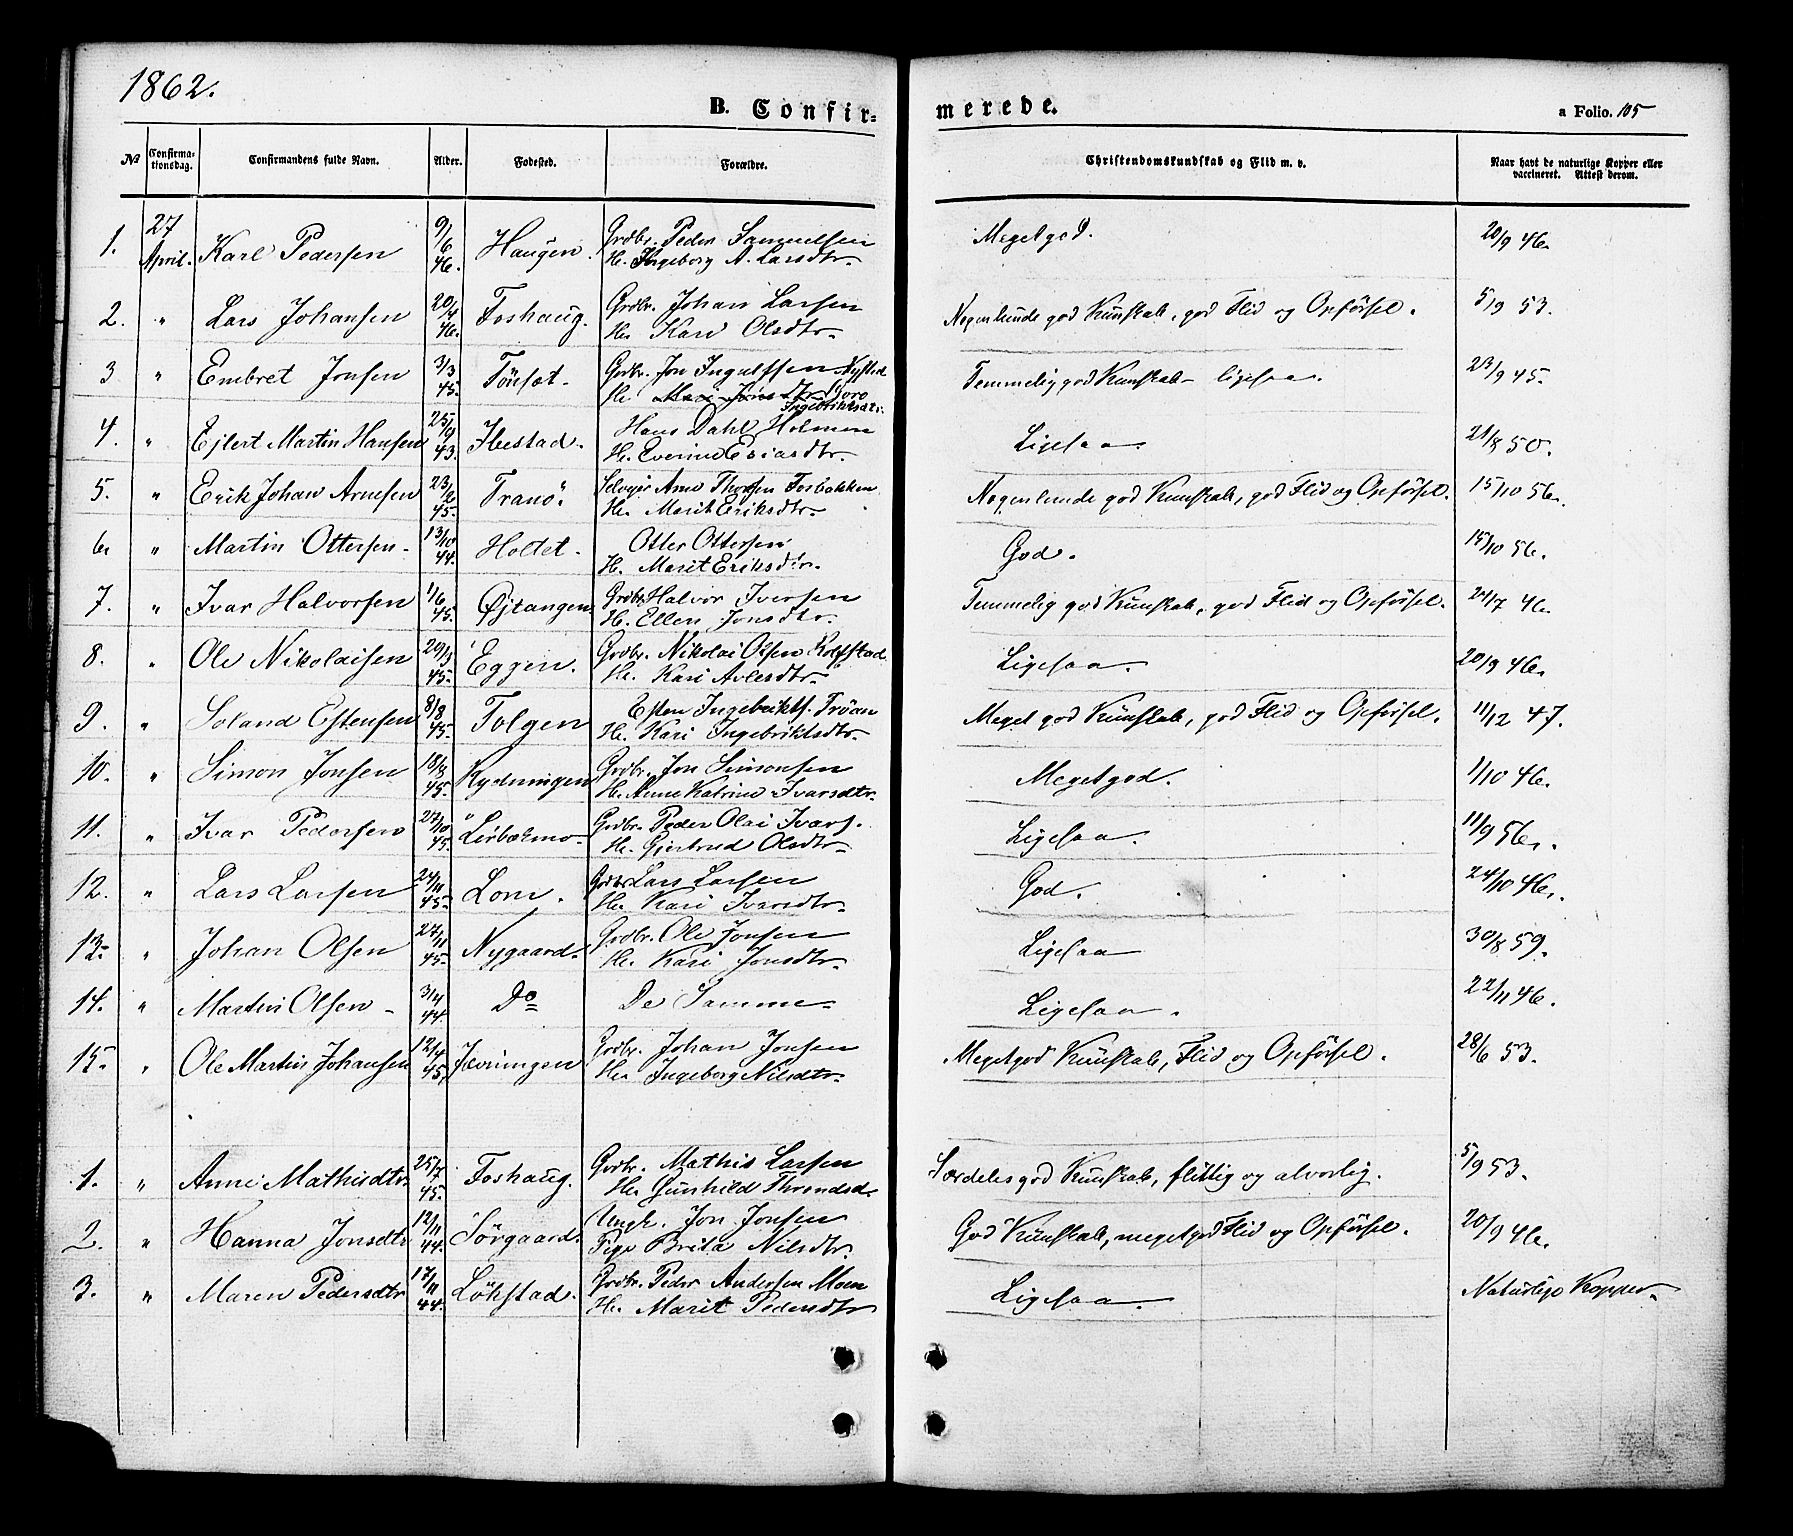 1862.
B. Confir=
merede.
a Folio. 105
No
Confirma-
tionsdag.
Confirmandens fulde Navn.
Alder.
Fødested.
Forældre.
Christendomskundskab og Flid m. v.
Naar havt de naturlige Kopper eller
vaccineret. Attest derom.
1. 27 April. Karl Pedersen 9/6 46. Haugen. Grdbr. Peder Samuelsen
H. Ingeborg A. Larsdtr.
Megetgod. 20/9 46.
2. " Lars Johansen 20/4 46. Foshaug. Grdbr. Johan Larsen
H. Kari Olsdtr.
Nogenlunde god Kunskab, god Flid og Opførsel. 5/9 53.
3 " Embret Jonsen 3/3 45. Tönset. Grdbr. Jon Ingulfsen Nysted
H. Goro
Ingebriktsdtr.
Temmelig god Kunskab ligesaa. 23/9 45.
4. " Ejlert Martin Hansen 25/9 43. Ibestad. Hans Dahl Holmen
H. Everine Esiasdtr.
Ligesaa 21/8 50.
5. " Erik Johan Arnesen 45. Tranö. Selvejer Arne Thorsen Fosbakken
H. Marit Eriksdtr.
Nogenlunde god Kunskab, god Flid og Opførsel. 15/10 56.
6 " Martin Ottersen 13/10 44. Holtet. Otter Ottersen
H. Marit Eriksdtr.
God. 15/10 56.
7. " Ivar Halvorsen 1/6 45. Øjtangen Grdbr. Halvor Iversen
H. Ellen Jonsdtr.
Temmelig god Kunskab, god Flid og Opførsel. 24/7 46.
8. " Ole Nikolaisen 45. Eggen. Grdbr. Nikolai Olsen Rolfstad
H. Kari Avlesdtr.
Ligesaa. 20/9 46.
9. " Soland Estensen 8/8 45. Tolgen Esten Ingebrikts. Tröan
H. Kari Ingebriktsdtr.
Meget god Kunskab, god Flid og Opførsel. 11/12 47.
10. " Simon Jonsen 18/8 45. Rydningen Grdbr. Jon Simonsen
H. Anne Katrine Ivarsdtr.
Megetgod. 1/10 46.
11. " Ivar Pedersen 27/10 45. Grdbr. Peder Olai Ivars.
H. Gjertrud Olsdtr.
Ligesaa. 11/9 56.
12. " Lars Larsen 24/11 45. Lom. Grdbr. Lars Larsen
H. Kari Ivarsdtr.
God. 24/10 46.
13. " Johan Olsen 27/11 45. Nygaard. Grdbr. Ole Jonsen
H. Kari Jonsdtr.
Ligesaa 30/8 59.
14. " Martin Olsen 3/4 44. Do De Samme
Ligesaa. 22/11 46.
15. " Ole Martin Johansen 12/4 45. Jevningen Grdbr. Johan Jonsen
H. Ingeborg Nilsdtr.
Megetgod Kunskab, Flid og Opførsel. 28/6 53.
1. " Anne Mathisdtr. 25/7 45. Foshaug. Grdbr. Mathis Larsen
H. Gunhild Throndsd.
Særdeles god Kunskab, flittig og alvorlig. 5/9 53.
2. " Hanna Jonsdtr 12/11 44. Sörgaard. Ungk. Jon Jonsen
Pige Brita Nilsdtr.
God Kunskab, megetgod Flid og Opførsel. 20/9 46.
3. " Maren Pedersdtr 17/11 44. Lökstad. Grdbr. Peder Andersen Moen
H. Marit Pedersdtr
Ligesaa. Naturlige Kopper.